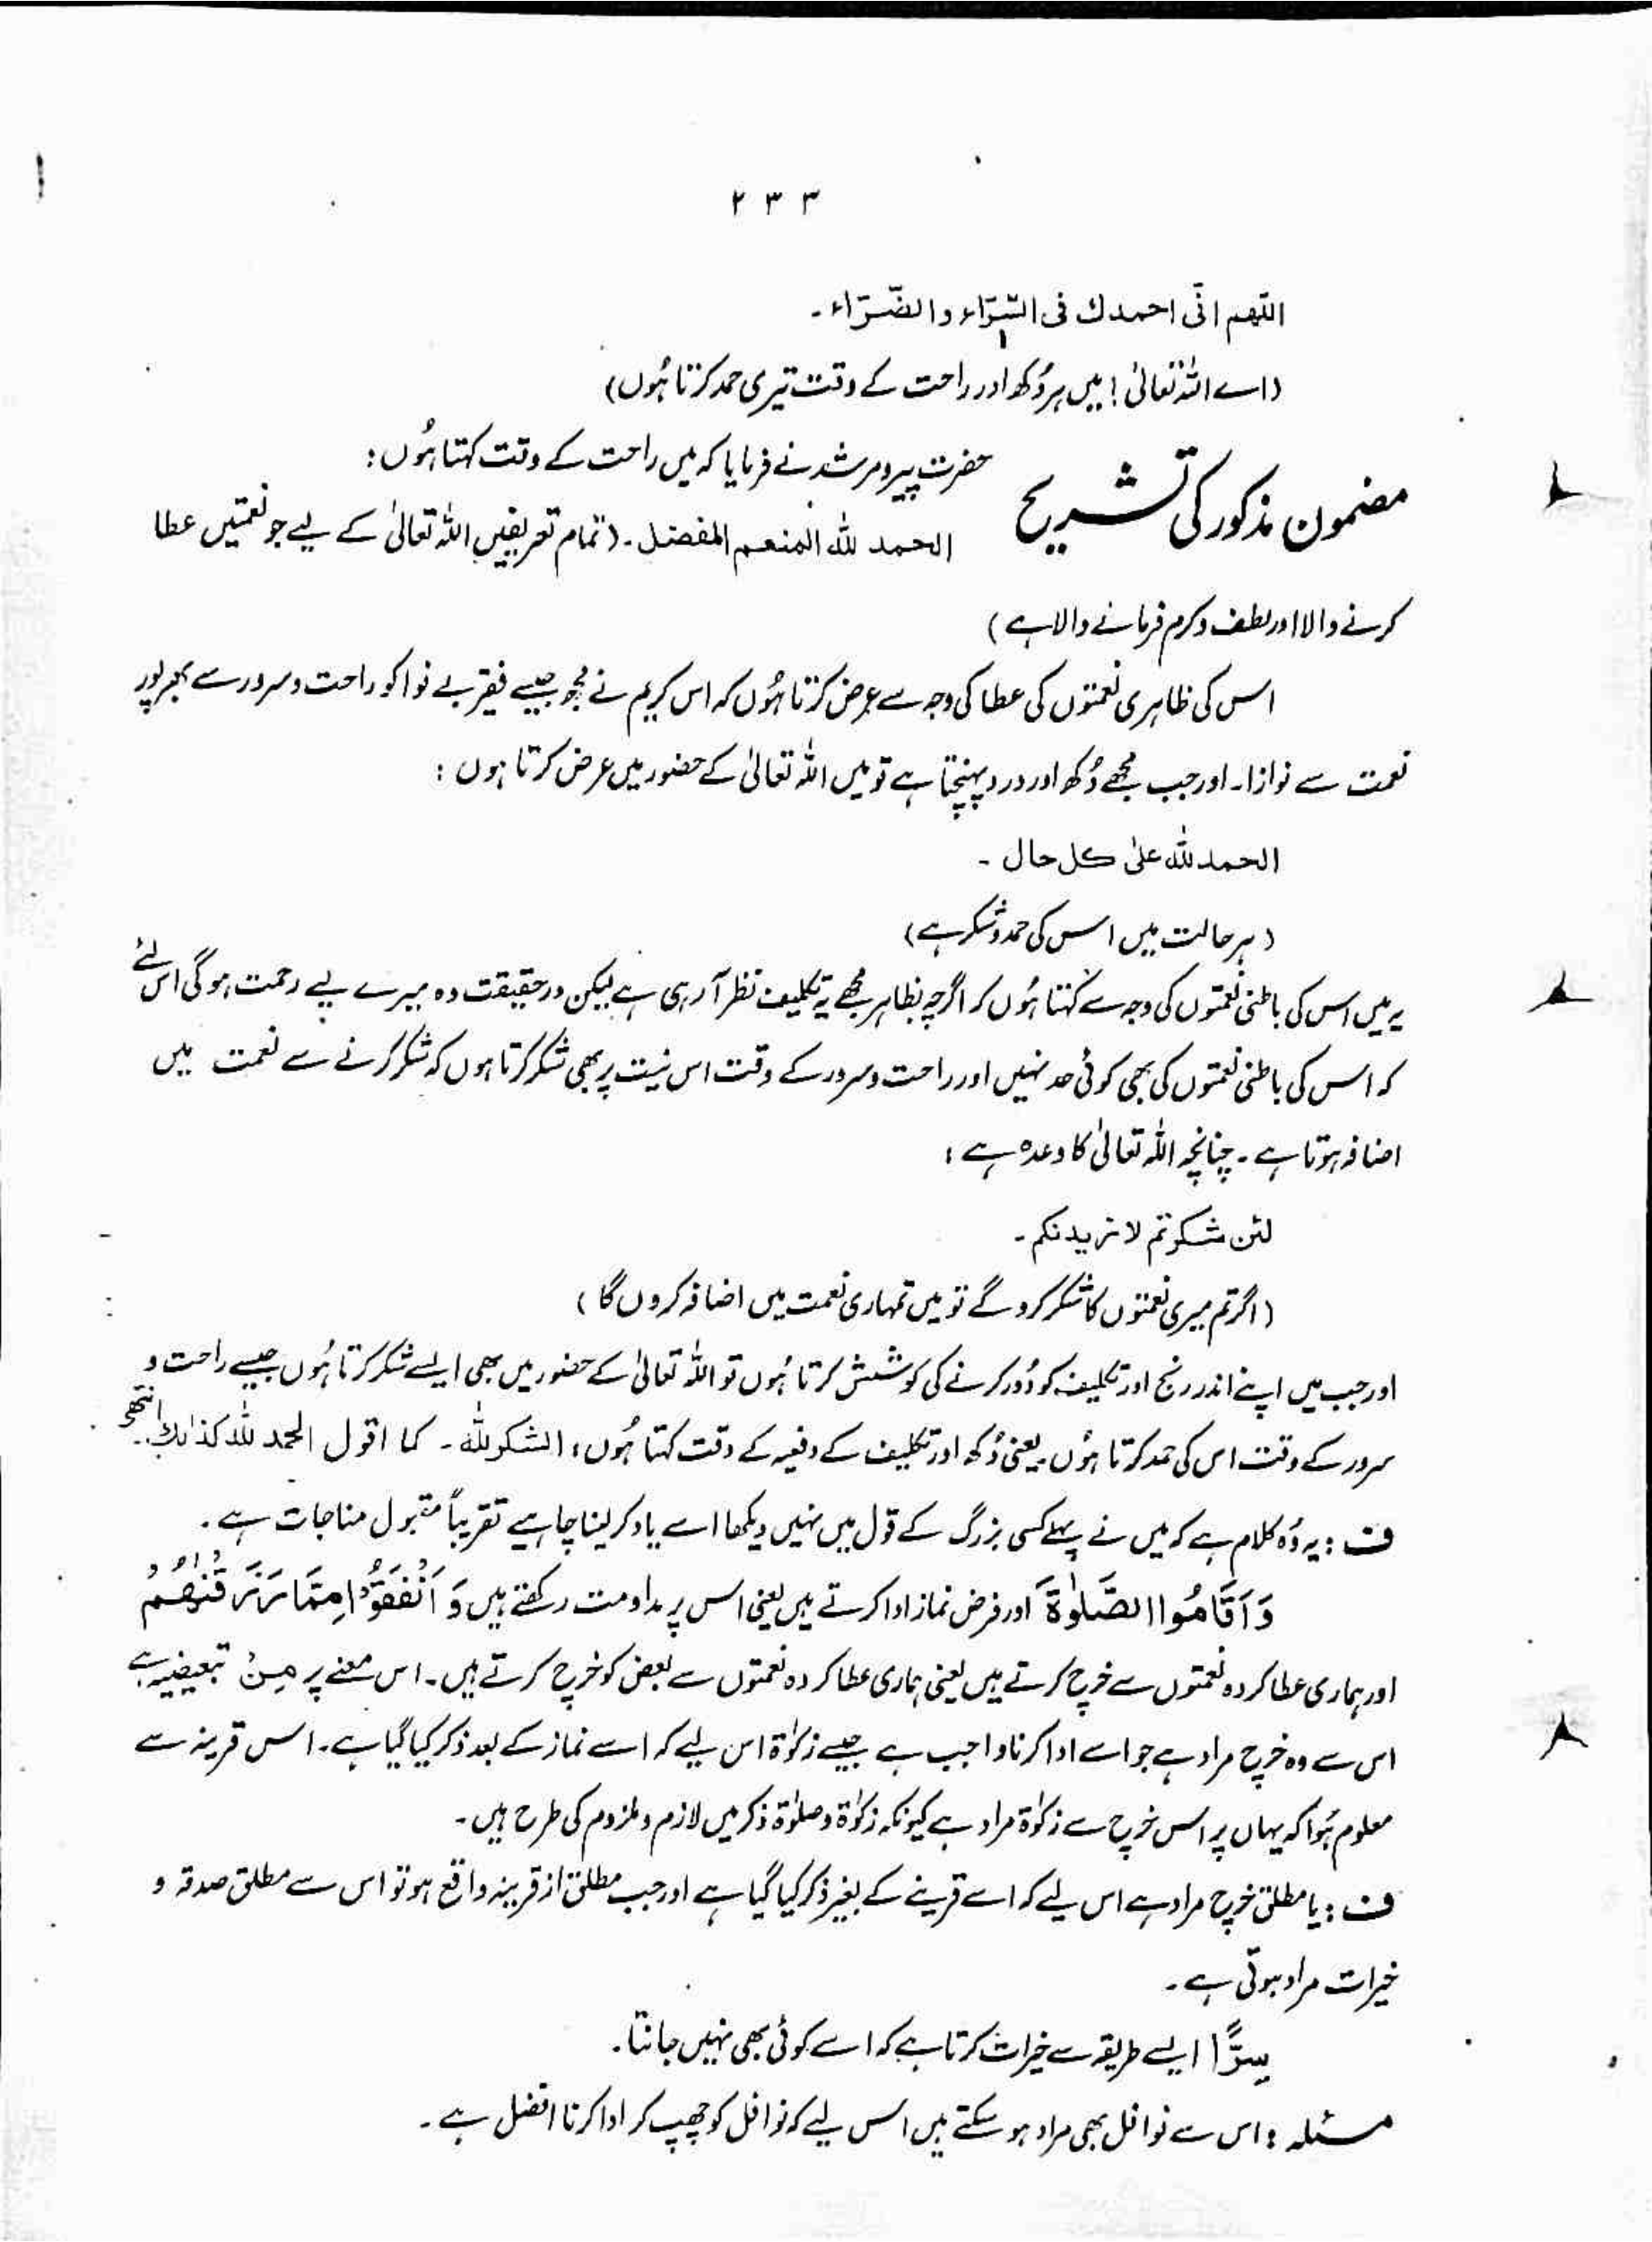 ۲۳۳
اللّٰهم انّی احمدك فی السّرّاء والضّرّاء۔
(اے اللہ تعالیٰ! میں ہر دُکھ اور راحت کے وقت تیری حمد کرتا ہُوں)
مضمون مذکور کی تشریح
حضرت پیرومرشد نے فرمایا کہ میں راحت کے وقت کہتا ہُوں:
الحمد للّٰه المنعم المفضل۔ (تمام تعریفیں اللہ تعالیٰ کے لیے جو نعمتیں عطا
کرنے والا اور لطف وکرم فرمانے والا ہے)
اس کی ظاہری نعمتوں کی عطا کی وجہ سے عرض کرتا ہُوں کہ اس کریم نے مجھ جیسے فقیر بے نوا کو راحت وسرور سے بھرپور
نعمت سے نوازا۔ اور جب مجھے دُکھ اور درد پہنچتا ہے تو میں اللہ تعالیٰ کے حضور میں عرض کرتا ہوں:
الحمد للّٰه علیٰ کل حال۔
(ہر حالت میں اس کی حمد و شکر ہے)
یہ میں اس کی باطنی نعمتوں کی وجہ سے کہتا ہُوں کہ اگرچہ بظاہر مجھے یہ تکلیف نظر آرہی ہے لیکن درحقیقت وہ میرے لیے رحمت ہوگی اس لئے
کہ اس کی باطنی نعمتوں کی بھی کوئی حد نہیں اور راحت وسرور کے وقت اس نیت پر بھی شکر کرتا ہوں کہ شکر کرنے سے نعمت میں
اضافہ ہوتا ہے۔ چنانچہ اللہ تعالیٰ کا وعدہ ہے:
لئن شکرتم لازیدنکم۔
(اگر تم میری نعمتوں کا شکر کرو گے تو میں تمہاری نعمت میں اضافہ کروں گا)
اور جب میں اپنے اندر رنج اور تکلیف کو دُور کرنے کی کوشش کرتا ہُوں تو اللہ تعالیٰ کے حضور میں بھی ایسے شکر کرتا ہُوں جیسے راحت و
سرور کے وقت اس کی حمد کرتا ہوں یعنی دُکھ اور تکلیف کے دفعیہ کے وقت کہتا ہُوں: الشکر للّٰه۔ کما اقول الحمد للّٰه کذالك انتھی۔
ف: یہ وُہ کلام ہے کہ میں نے پہلے کسی بزرگ کے قول میں نہیں دیکھا اسے یاد کر لینا چاہیے تقریباً مقبول مناجات ہے۔
وَاَقَامُوا الصَّلٰوۃَ اور فرض نماز ادا کرتے ہیں یعنی اس پر مداومت رکھتے ہیں وَاَنْفَقُوْا مِمَّا رَزَقْنٰهُمْ
اور ہماری عطا کردہ نعمتوں سے خرچ کرتے ہیں یعنی ہماری عطا کردہ نعمتوں سے بعض کو خرچ کرتے ہیں۔ اس معنے پر مِنْ تبعیضیہ ہے
اس سے وہ خرچ مراد ہے جو اسے ادا کرنا واجب ہے جیسے زکوٰۃ اس لیے کہ اسے نماز کے بعد ذکر کیا گیا ہے۔ اس قرینہ سے
معلوم ہُوا کہ یہاں پر اس خرچ سے زکوٰۃ مراد ہے کیونکہ زکوٰۃ وصلوٰۃ ذکر میں لازم وملزوم کی طرح ہیں۔
ف: یا مطلق خرچ مراد ہے اس لیے کہ اسے قرینے کے بغیر ذکر کیا گیا ہے اور جب مطلق از قرینہ واقع ہو تو اس سے مطلق صدقہ و
خیرات مراد ہوتی ہے۔
سِرًّا ایسے طریقہ سے خیرات کرتا ہے کہ اسے کوئی بھی نہیں جانتا۔
مسئلہ: اس سے نوافل بھی مراد ہو سکتے ہیں اس لیے کہ نوافل کو چھپ کر ادا کرنا افضل ہے۔